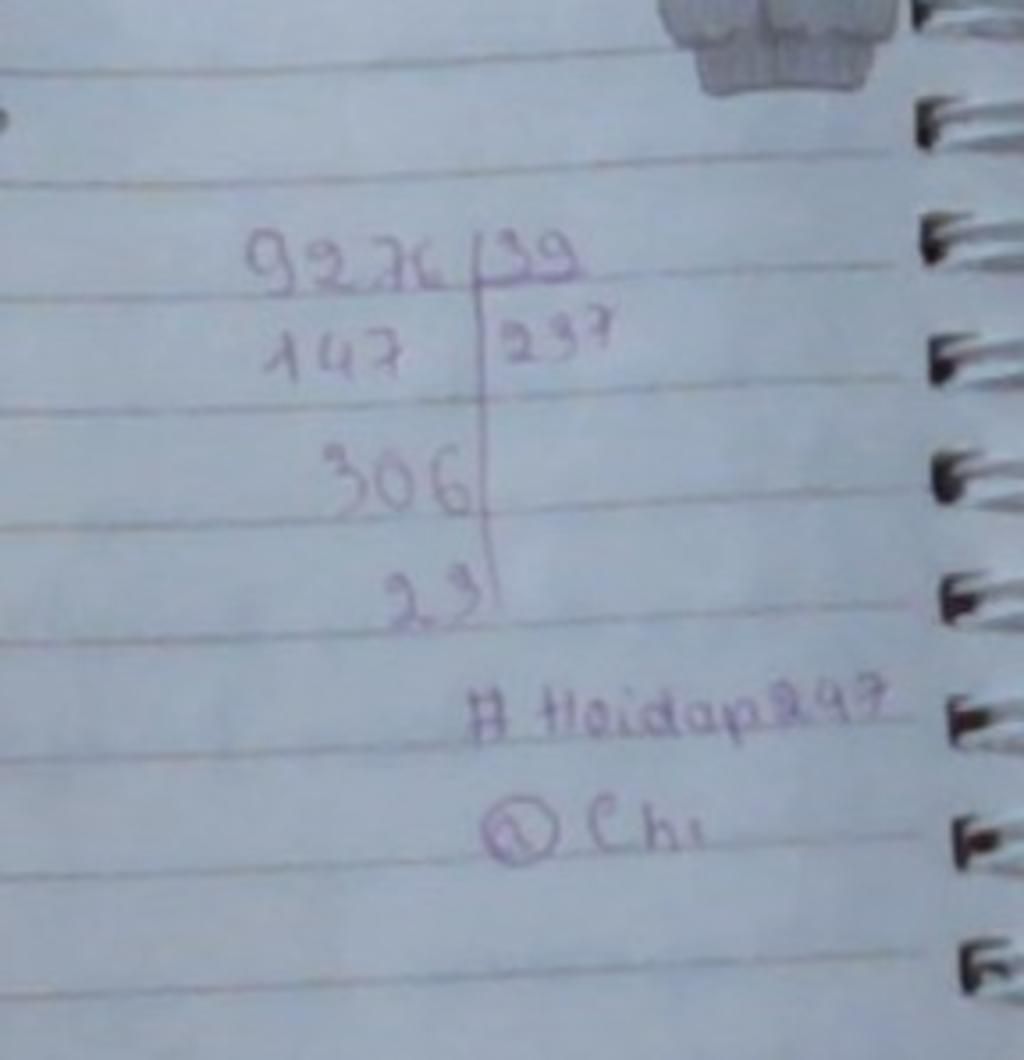 9276 39
147 237
306
33
# Hoidap247
@ Chi